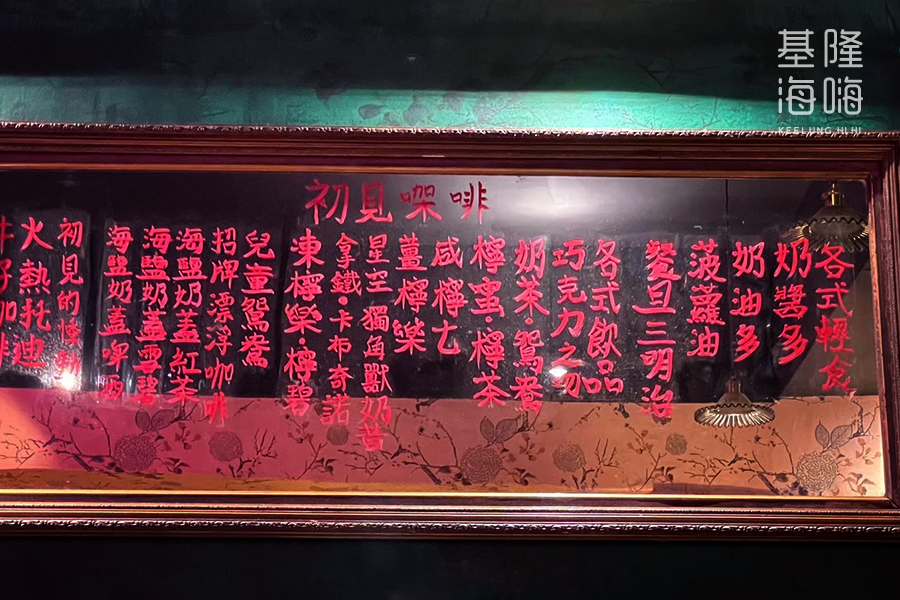 基隆
海嗨
KEELUNG HIHI
初見㗎啡
各式輕食
奶醬多
奶油多
菠蘿油
餐旦三明治
各式飲品
巧克力之吻
奶茶·鴛鴦
檸蜜·檸茶
咸檸七
薑檸樂
星空獨角獸奶昔
拿鐵·卡布奇諾
凍檸樂·檸碧
兒童鴛鴦
招牌漂浮咖啡
海鹽奶蓋紅茶
海鹽奶蓋雪碧
海鹽奶蓋啤酒
初見的
火熱托迪